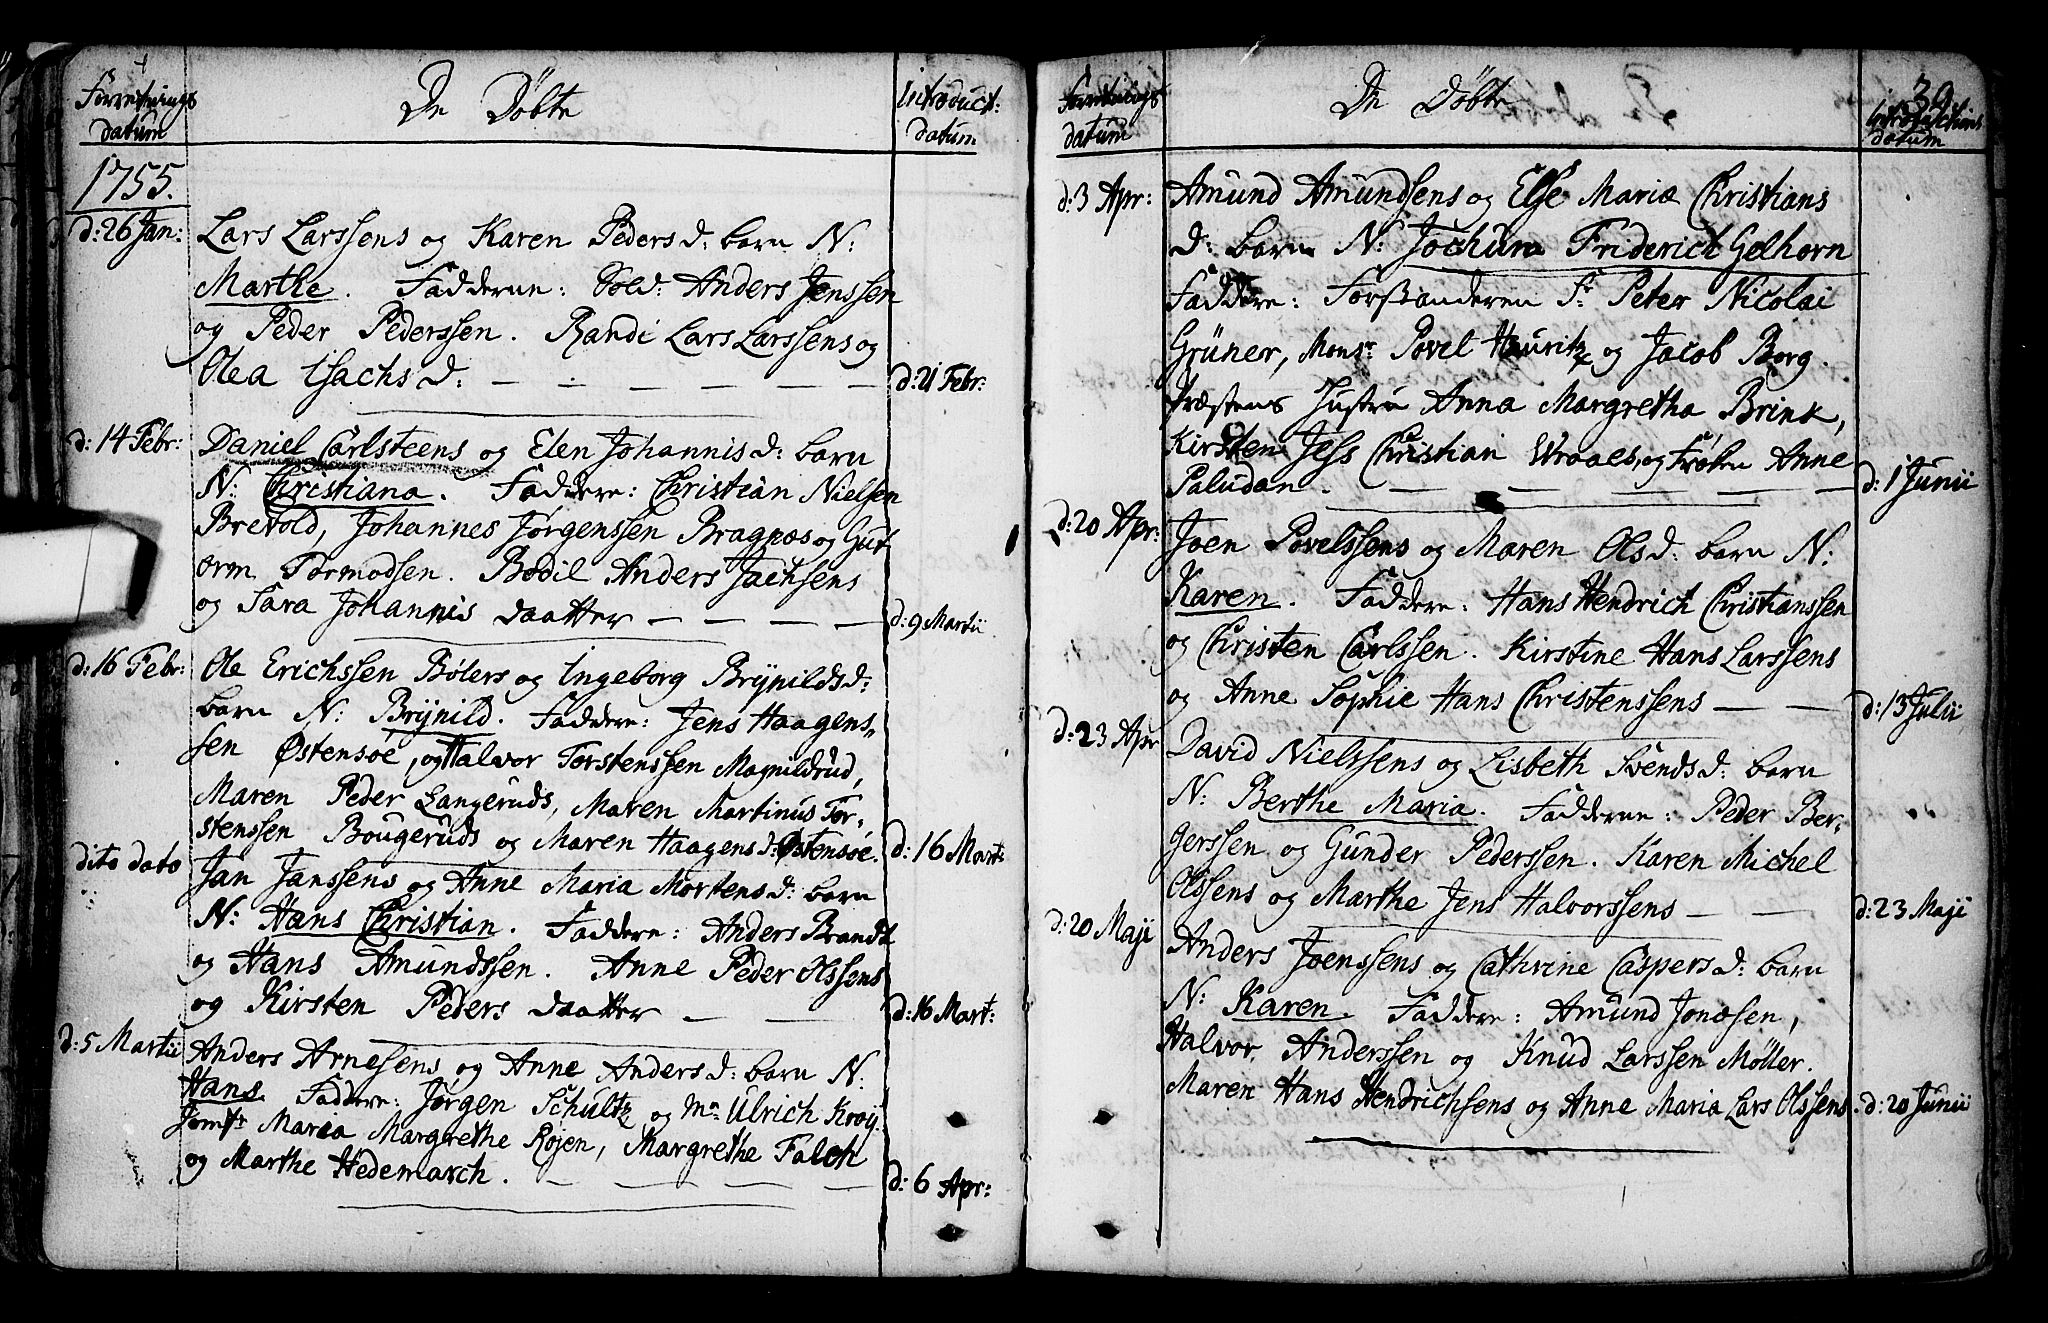 Forretnings
datum
De Døbte
Introduct:
datum
1755.
d: 26 Jan: Lars Larssens og Karen Peders d: barn N:
Marthe. Fadderne: Sold: Anders Jenssen
og Peder Pederssen. Randi Lars Larssens og
Olea Isachs d: — — — — — — d: 21 Febr:
d: 14 Febr: Daniel Carlsteens og Elen Johannis d: barn
N: Christiana. Faddere: Christian Nielsen
Brevold, Johannes Jørgenssen Bragnæs og Gut
orm Tormodsen. Bodil Anders Jachsens
og Sara Johannis daatter — — — — d: 9 Martii
d: 16 Febr: Ole Erichssen Bølers og Ingeborg Brÿnilds d:
barn N: Brÿnild. Faddere: Jens Haagens-
sen Østensøe, og Halvor Torstenssen Magnildrud,
Maren Peder Langeruds, Maren Martinus Tor-
stenssen Bougeruds og Maren Haagens d: Østensøe. d: 16 Mart:
dito dato Jan Janssens og Anne Maria Mortens d: barn
N: Hans Christian. Faddere: Anders Brandt
og Hans Amundssen. Anne Peder Olssens
og Kirsten Peders daatter — — d: 16 Mart:
d: 5 Martii Anders Arnesens og Anne Anders d: barn N:
Hans. Faddere: Jørgen Schultz og Mr Ulrich Kroÿ.
Jomfr Maria Margrethe Røjen, Margrethe Falch
og Marthe Hedemarch. — — — — d: 6 Apr:
datum
De Døbte
39
Introductions
datum
d: 3 Apr: Amund Amundsens og Else Maria Christians
d: barn N: Jochum Friderich Gelhorn
Faddere: Forstanderen Sr Peter Nicolai
Grüner, Monsr Povel Hauritz og Jacob Borg.
Præstens Hustru Anna Margretha Brink,
Kirsten Jess Christian Wraaes, og Frøken Anne
Paludan. — — — — — — d: 1 Junii
d: 20 Apr: Joen Povelssens og Maren Ols d: barn N:
Karen. Faddere: Hans Hendrich Christianssen
og Christen Carlssen. Kirstine Hans Larssens
og Anne Sophie Hans Christenssens — — d: 13 Julii
d: 23 Apr David Nielssens og Lisbeth Svends d: barn
N: Berthe Maria. Fadderne: Peder Ber-
gerssen og Gunder Pederssen. Karen Michel
Olssens og Marthe Jens Halvorssens — — d: 23 Maji
d: 20 Maji Anders Joenssens og Cathrine Caspers d: barn
N: Karen. Faddere: Amund Jonæsen,
Halvor Anderssen og Knud Larssen Møller.
Maren Hans Hendrichsens og Anne Maria Lars Olssens. d: 20 Junii